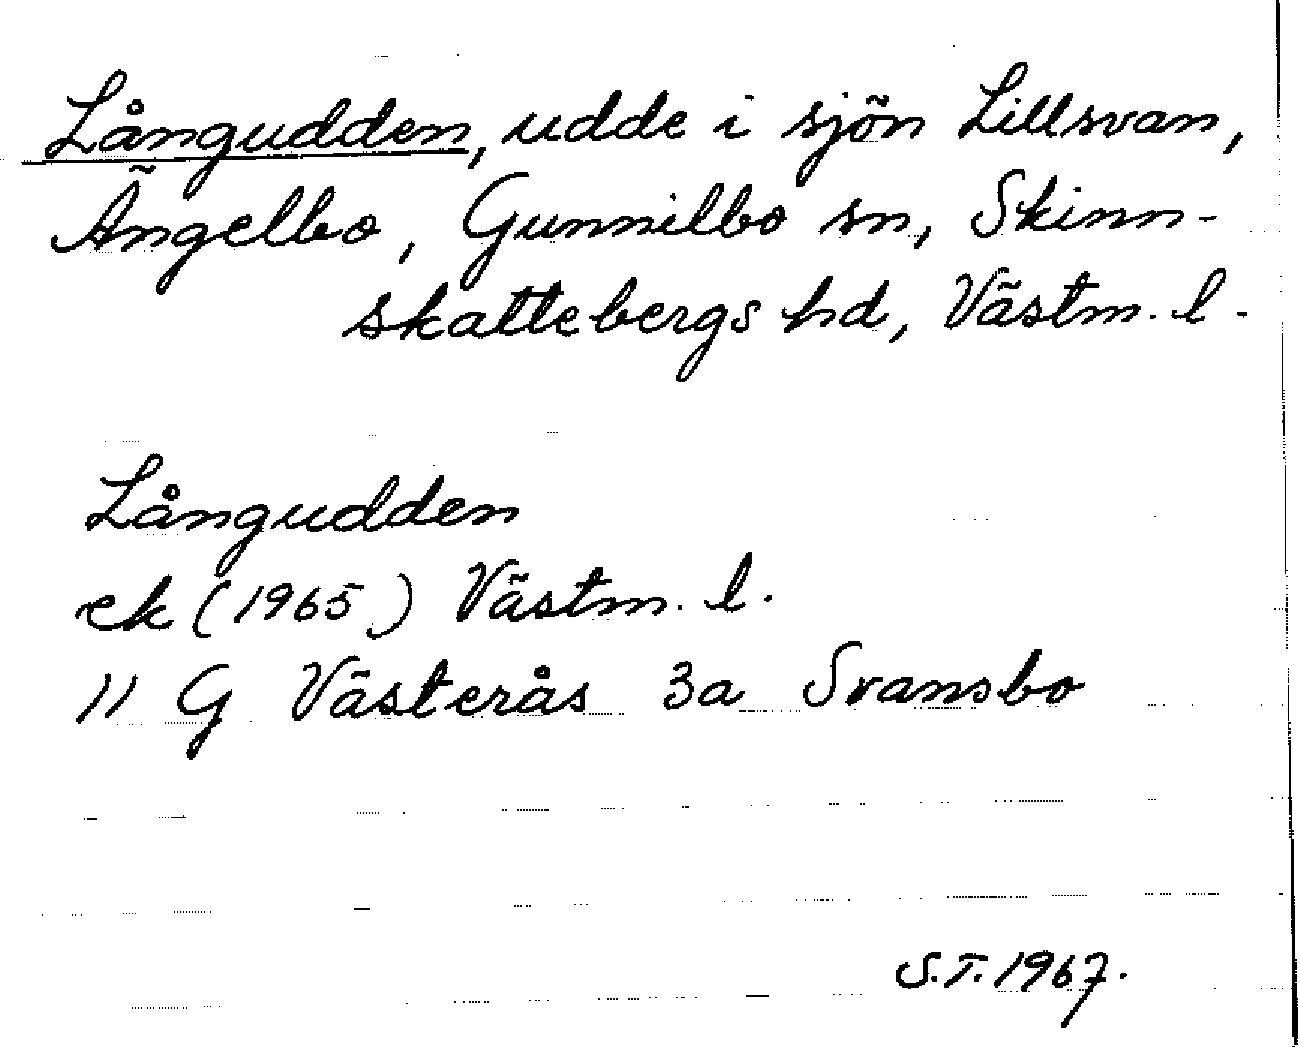 Långudden, udde i sjön Lillsvan,
Ängelbo, Gunnilbo sn, Skinn-
skattebergs hd, Västm. l.
Långudden
ek (1965) Västm. l.
11 G Västerås 3a Svansbo
S.T. 1967.